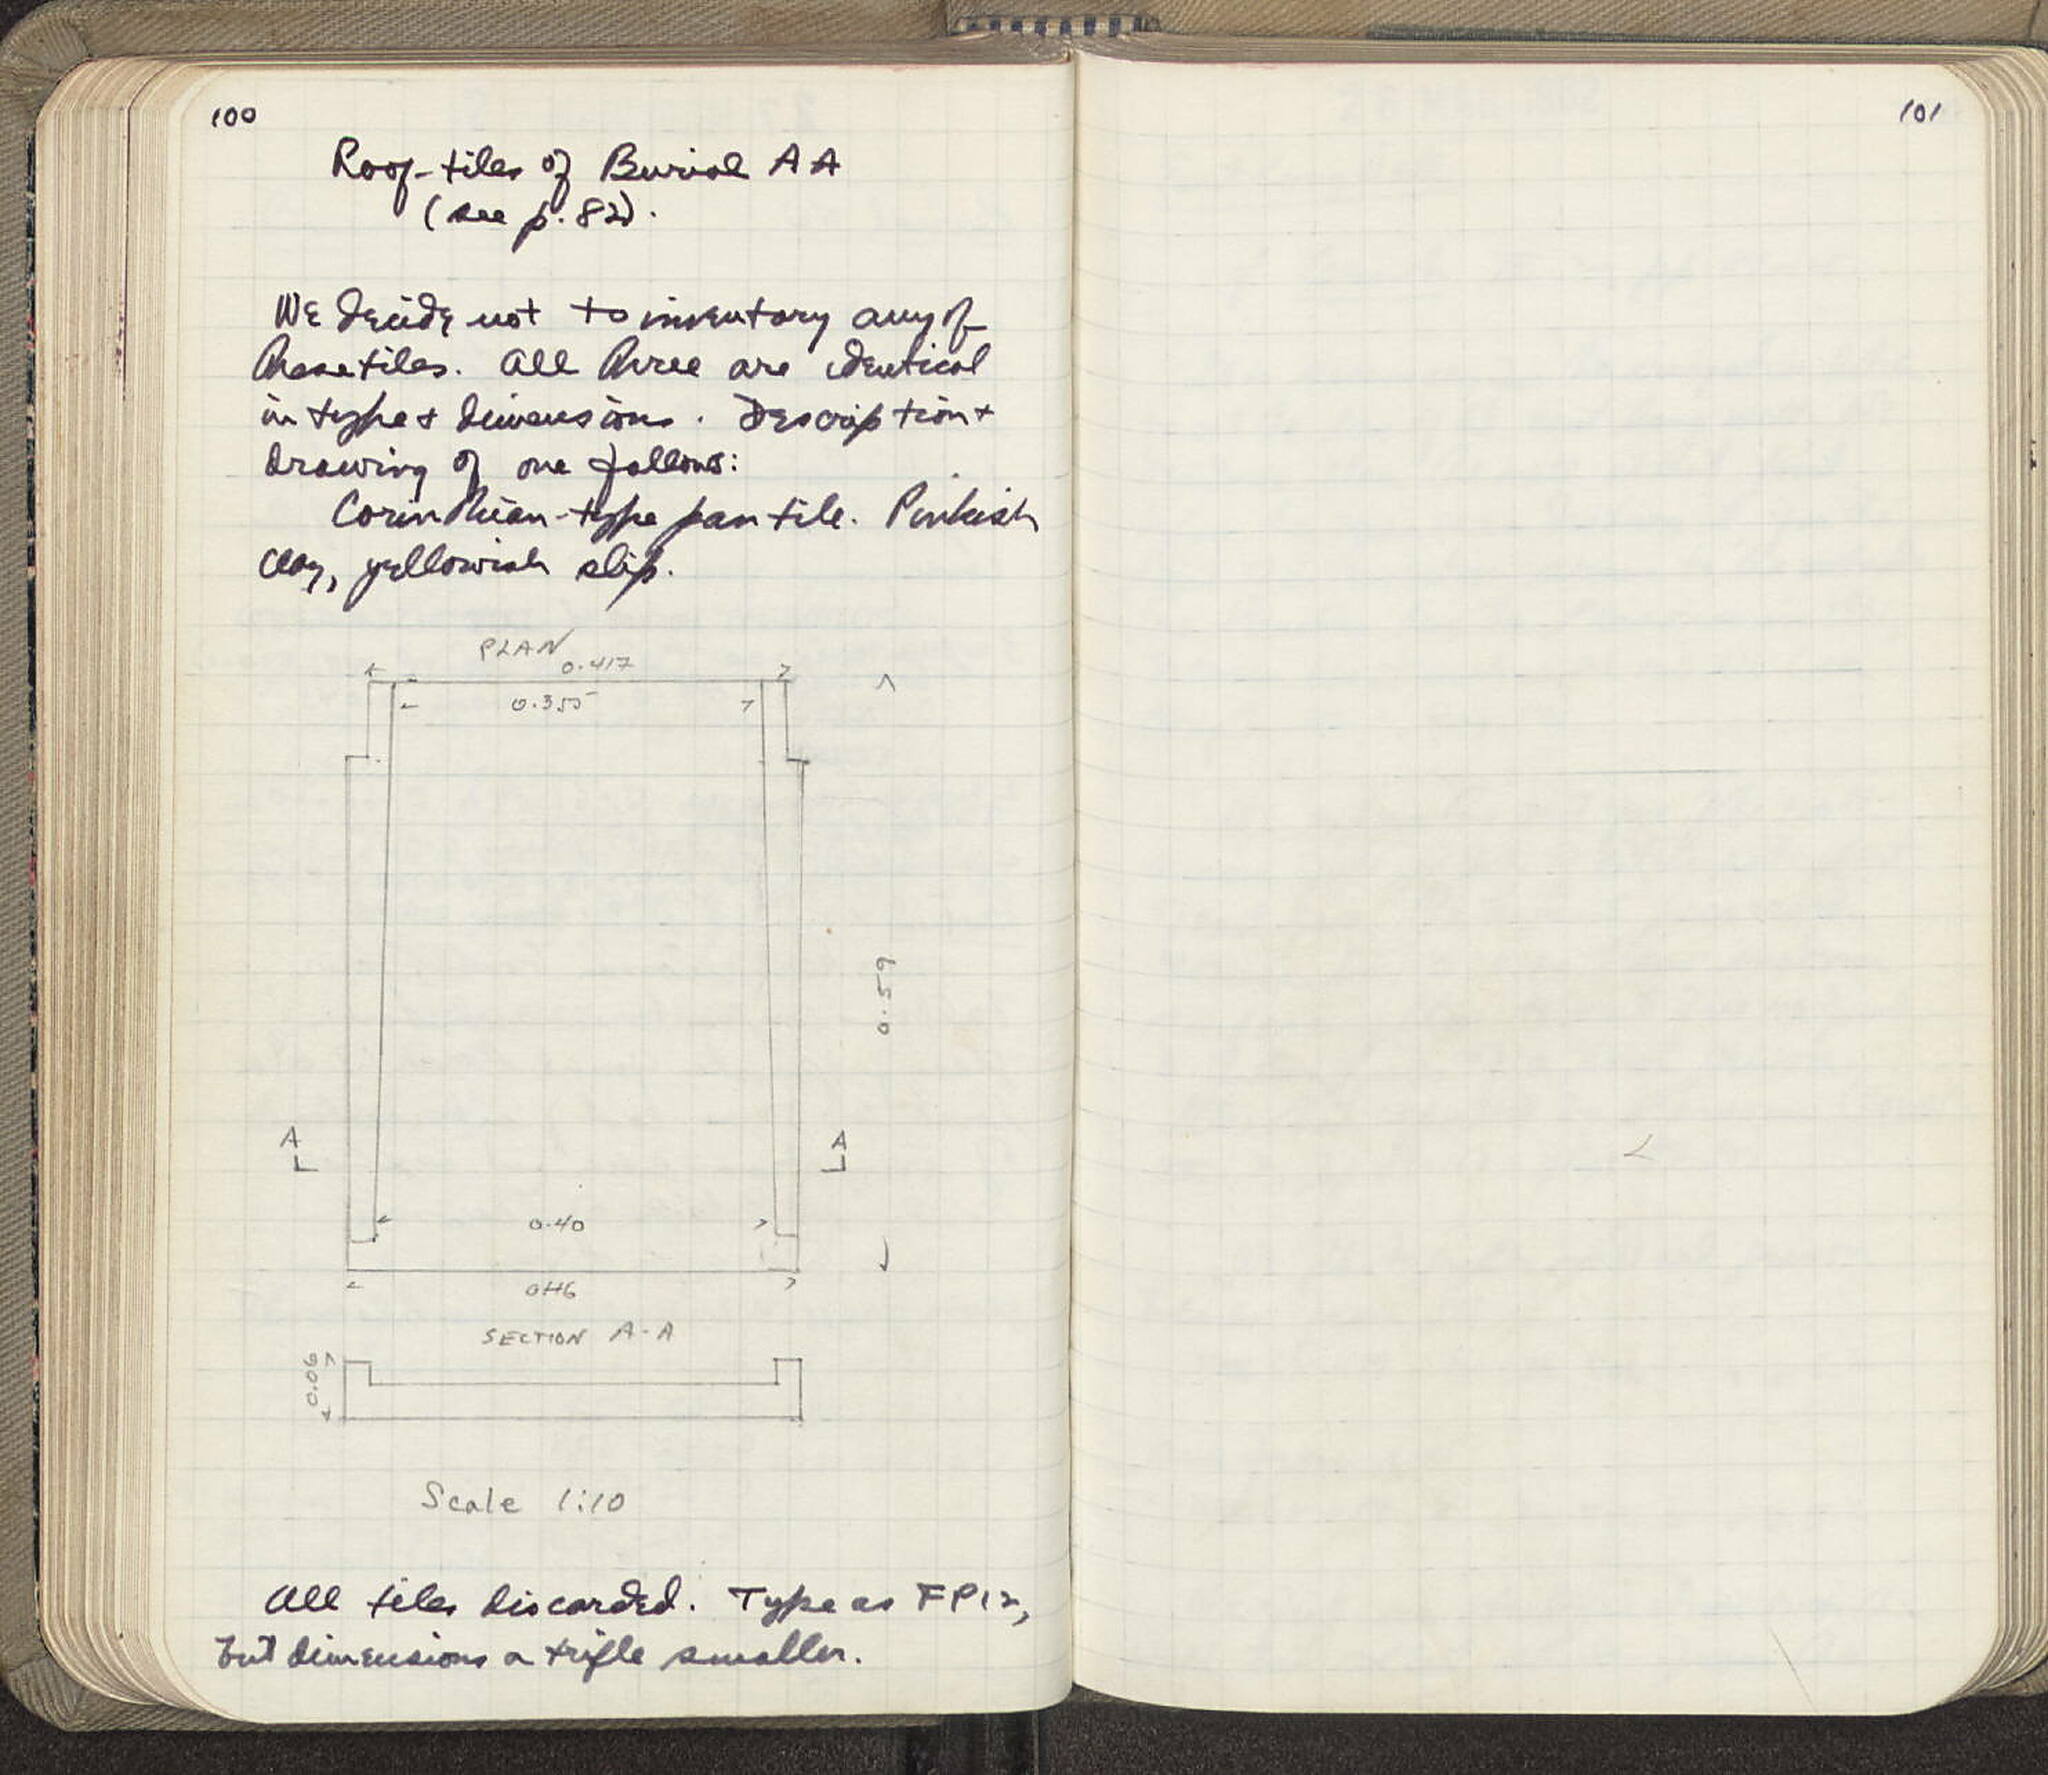 100
Roof-tiles of Burial AA
(see p. 82).
We decide not to inventory any of
these tiles. All three are identical
in type + dimensions. Description +
drawing of one follows:
Corinthian-type pan tile. Pinkish
clay, yellowish slip.
PLAN
0.417
0.355
0.59
A A
0.40
0.46
SECTION A-A
0.06
Scale 1:10
All tiles discarded. Type as FP12,
but dimensions a trifle smaller.
101